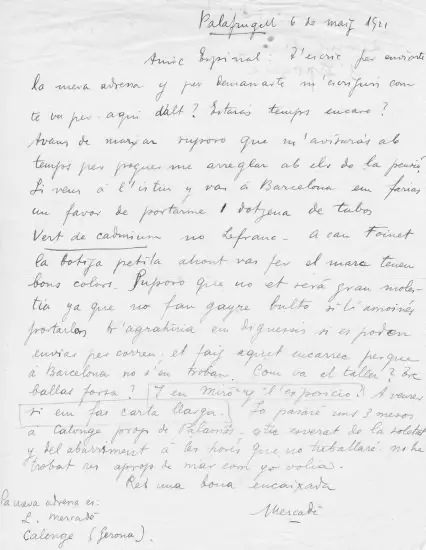 Palafrugell 6 de maig 1921
Amic Espinal: T'escric per enviarte
la meva adressa y per demanarte m'escriguis com
te va per aqui dalt? Estarás temps encare?
Avans de marxar suposo que m'avisarás ab
temps per poguerme arreglar ab els de la pensió.
Si vens á l'istiu y vas á Barcelona em farias
un favor de portarme 1 dotzena de tubos
Vert de cadmium no Lefranc. A can Foinet
la botiga petita ahont vas fer el marc tenen
bons colors. Suposo que no et será gran moles-
tia ya que no fan gayre bulto si t'
portarlos t'agrahiria em diguessis si es poden
enviar per correu. et faig aquet encarrec perque
á Barcelona no s'en troban. Com va el taller? Tre
ballas forsa? Y en Miró y l'exposició? A veure
si em fas carta llarga. Jo pasaré uns 3 mesos
á Calonge prop de Palamós. de la soletat
y del aburriment á les horés que no treballaré no he
trobat res aprop de mar com jo volia.
Reb una bona encaixada
Mercadé
la meva adressa es:
L. Mercadé
Calonge (Gerona).